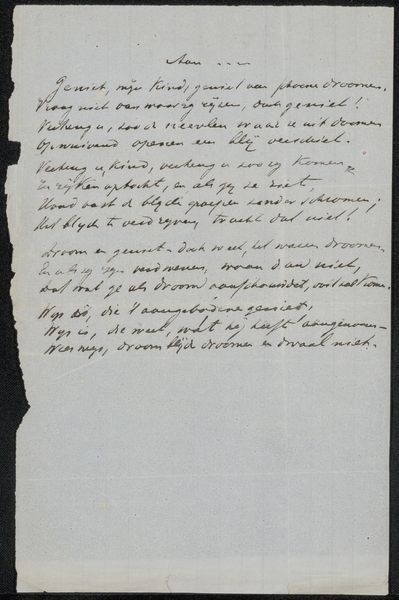 Aan ....
Geniet, mijn kind, geniet van schoone droomen.
Vraag niet van waar zij rijzen, doch geniet!
Verheug u, zoo de nevelen waar ze uit doomen
Opwuivend openen een blij verschiet.
Verheug u, kind, verheug u zoo zij komen
En rijken optocht, en als gij ze ziet,
Houd vast de blijde groepen zonder schromen;
Het blijde te verdrijven, tracht dat niet!
Droom en geniet doch weet, het waren droomen
En als zij zijn verdwenen, waan dan niet,
dat wat ge als droom aanschouwdet, ooit zal komen.
Wijs is, die 't aangebodene geniet,
Wijs is, die weet, wát hij heeft aangenomen
Wees wijs, droom blijde droomen en dwaal niet.